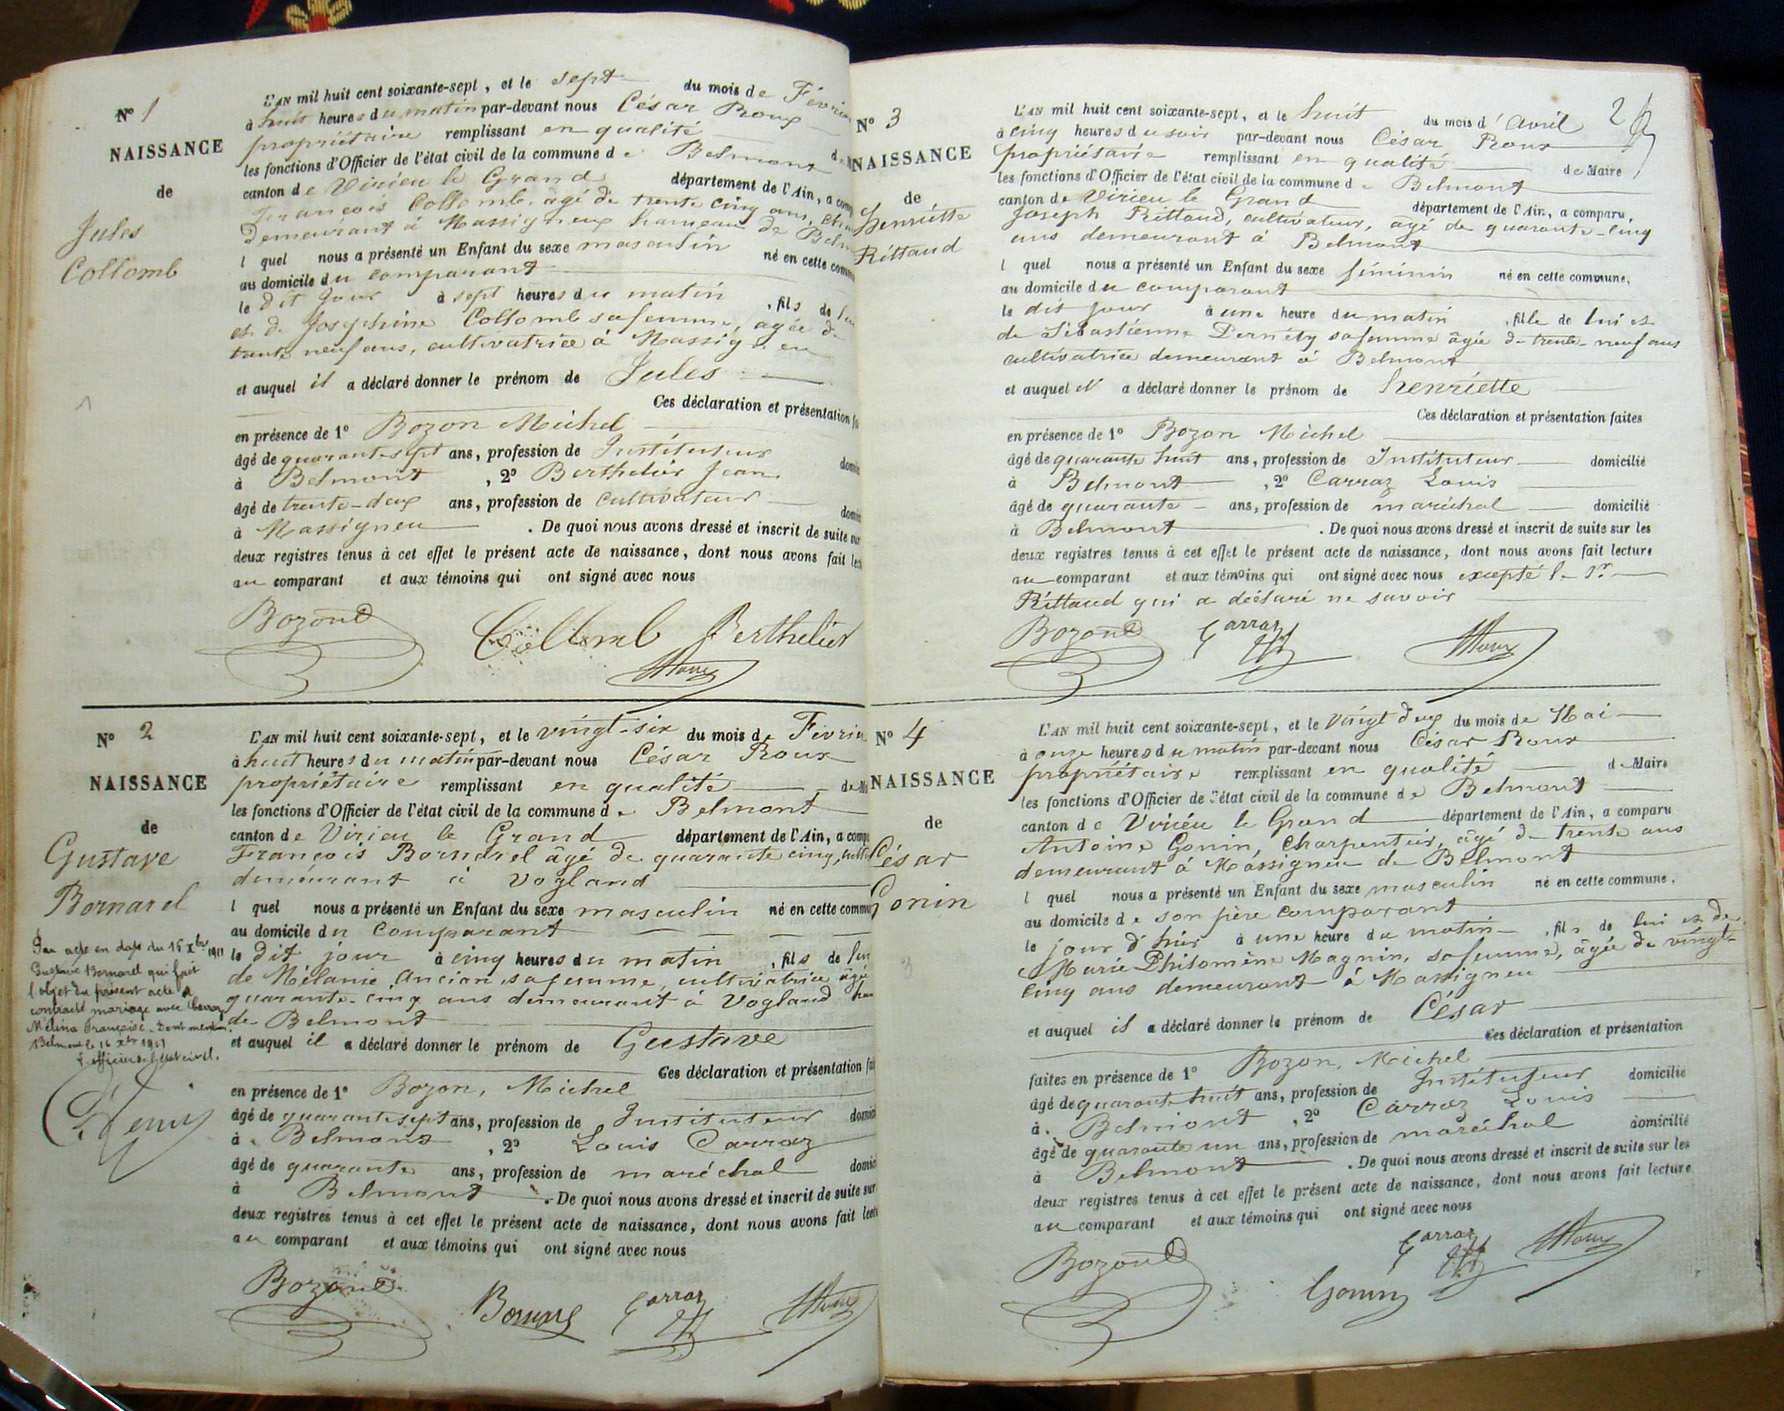 N° 1
NAISSANCE
de
Jules
Collomb
L'AN mil huit cent soixante-sept, et le sept du mois de Février
à huit heures du matin par-devant nous César Roux
propriétaire remplissant en qualité
les fonctions d'Officier de l'état civil de la commune de Belmont
canton de Virieu le Grand département de l'Ain, a comp
François Collomb, âgé de trente cinq ans,
demeurant à Massigneux hameau de Belm
l quel nous a présenté un Enfant du sexe masculin né en cette commu
au domicile du comparant
le dit jour à sept heures du matin, fils de lui
et de Josephine Collomb sa femme, agée de
trente neuf ans, cultivatrice à Massigneu
et auquel il a déclaré donner le prénom de Jules
Ces déclaration et présentation fai
en présence de 1° Bozon Michel
âgé de quarante sept ans, profession de Instituteur domici
à Belmont, 2° Berthelier Jean
âgé de trente-deux ans, profession de cultivateur domici
à Massigneu. De quoi nous avons dressé et inscrit de suite sur
deux registres tenus à cet effet le présent acte de naissance, dont nous avons fait lect
au comparant et aux témoins qui ont signé avec nous
Bozon Collomb Berthelier
Roux
N° 2
NAISSANCE
de
Gustave
Bornarel
Par acte en date du 16 Xbre 1911
Gustave Bornarel qui fait
l'objet du présent acte a
contracté mariage avec
Mélina Françoise. Dont mention.
Belmont le 16 Xbre 1911
L'officier de l'état civil.
L'AN mil huit cent soixante-sept, et le vingt-six du mois de Février
à huit heures du matin par-devant nous César Roux
propriétaire remplissant en qualité de Mai
les fonctions d'Officier de l'état civil de la commune de Belmont
canton de Virieu le Grand département de l'Ain, a compa
François Bornarel âgé de quarante cinq, cultiv
demeurant à Vogland
l quel nous a présenté un Enfant du sexe masculin né en cette commu
au domicile du comparant
le dit jour à cinq heures du matin, fils de lui
de Mélanie Ancian, sa femme, cultivatrice âgée
quarante-cinq ans demeurant à Vogland ham
de Belmont
et auquel il a déclaré donner le prénom de Gustave
Ces déclaration et présentation fai
en présence de 1° Bozon, Michel
âgé de quarante sept ans, profession de Instituteur domici
à Belmont, 2° Louis Carraz
âgé de quarante ans, profession de maréchal domici
à Belmont. De quoi nous avons dressé et inscrit de suite sur
deux registres tenus à cet effet le présent acte de naissance, dont nous avons fait lect
au comparant et aux témoins qui ont signé avec nous
Bozon Bornarel Carraz Roux
2
N° 3
NAISSANCE
de
Henriette
Rittaud
L'AN mil huit cent soixante-sept, et le huit du mois d'Avril
à cinq heures du soir par-devant nous César Roux
propriétaire remplissant en qualité de Maire
les fonctions d'Officier de l'état civil de la commune de Belmont
canton de Virieu le Grand département de l'Ain, a comparu,
Joseph Rittaud, cultivateur, agé de quarante-cinq
ans demeurant à Belmont
l quel nous a présenté un Enfant du sexe féminin né en cette commune,
au domicile du comparant
le dit jour à une heure du matin, fille de lui et
de Sébastienne Dernéty sa femme âgée de trente-neuf ans
cultivatrice demeurant à Belmont
et auquel il a déclaré donner le prénom de henriette
Ces déclaration et présentation faites
en présence de 1° Bozon Michel
âgé de quarante huit ans, profession de Instituteur domicilié
à Belmont, 2° Carraz Louis
âgé de quarante ans, profession de maréchal domicilié
à Belmont. De quoi nous avons dressé et inscrit de suite sur les
deux registres tenus à cet effet le présent acte de naissance, dont nous avons fait lecture
au comparant et aux témoins qui ont signé avec nous excepté le Sr
Rittaud qui a déclaré ne savoir
Bozon Carraz Roux
N° 4
NAISSANCE
de
César
Gonin
L'AN mil huit cent soixante-sept, et le vingt deux du mois de Mai
à onze heures du matin par-devant nous César Roux
propriétaire remplissant en qualité de Maire
les fonctions d'Officier de l'état civil de la commune de Belmont
canton de Virieu le Grand département de l'Ain, a comparu
Antoine Gonin, Charpentier, âgé de trente ans
demeurant à Massigneu de Belmont
l quel nous a présenté un Enfant du sexe masculin né en cette commune,
au domicile de son père comparant
le jour d'hier à une heure du matin, fils de lui et de
Marie Philomène Magnin, sa femme, âgée de vingt-
cinq ans demeurant à Massigneu
et auquel il a déclaré donner le prénom de César
Ces déclaration et présentation
faites en présence de 1° Bozon, Michel
âgé de quarante huit ans, profession de Instituteur domicilié
à Belmont, 2° Carraz Louis
âgé de quarante un ans, profession de maréchal domicilié
à Belmont. De quoi nous avons dressé et inscrit de suite sur les
deux registres tenus à cet effet le présent acte de naissance, dont nous avons fait lecture
au comparant et aux témoins qui ont signé avec nous
Bozon Gonin Carraz Roux